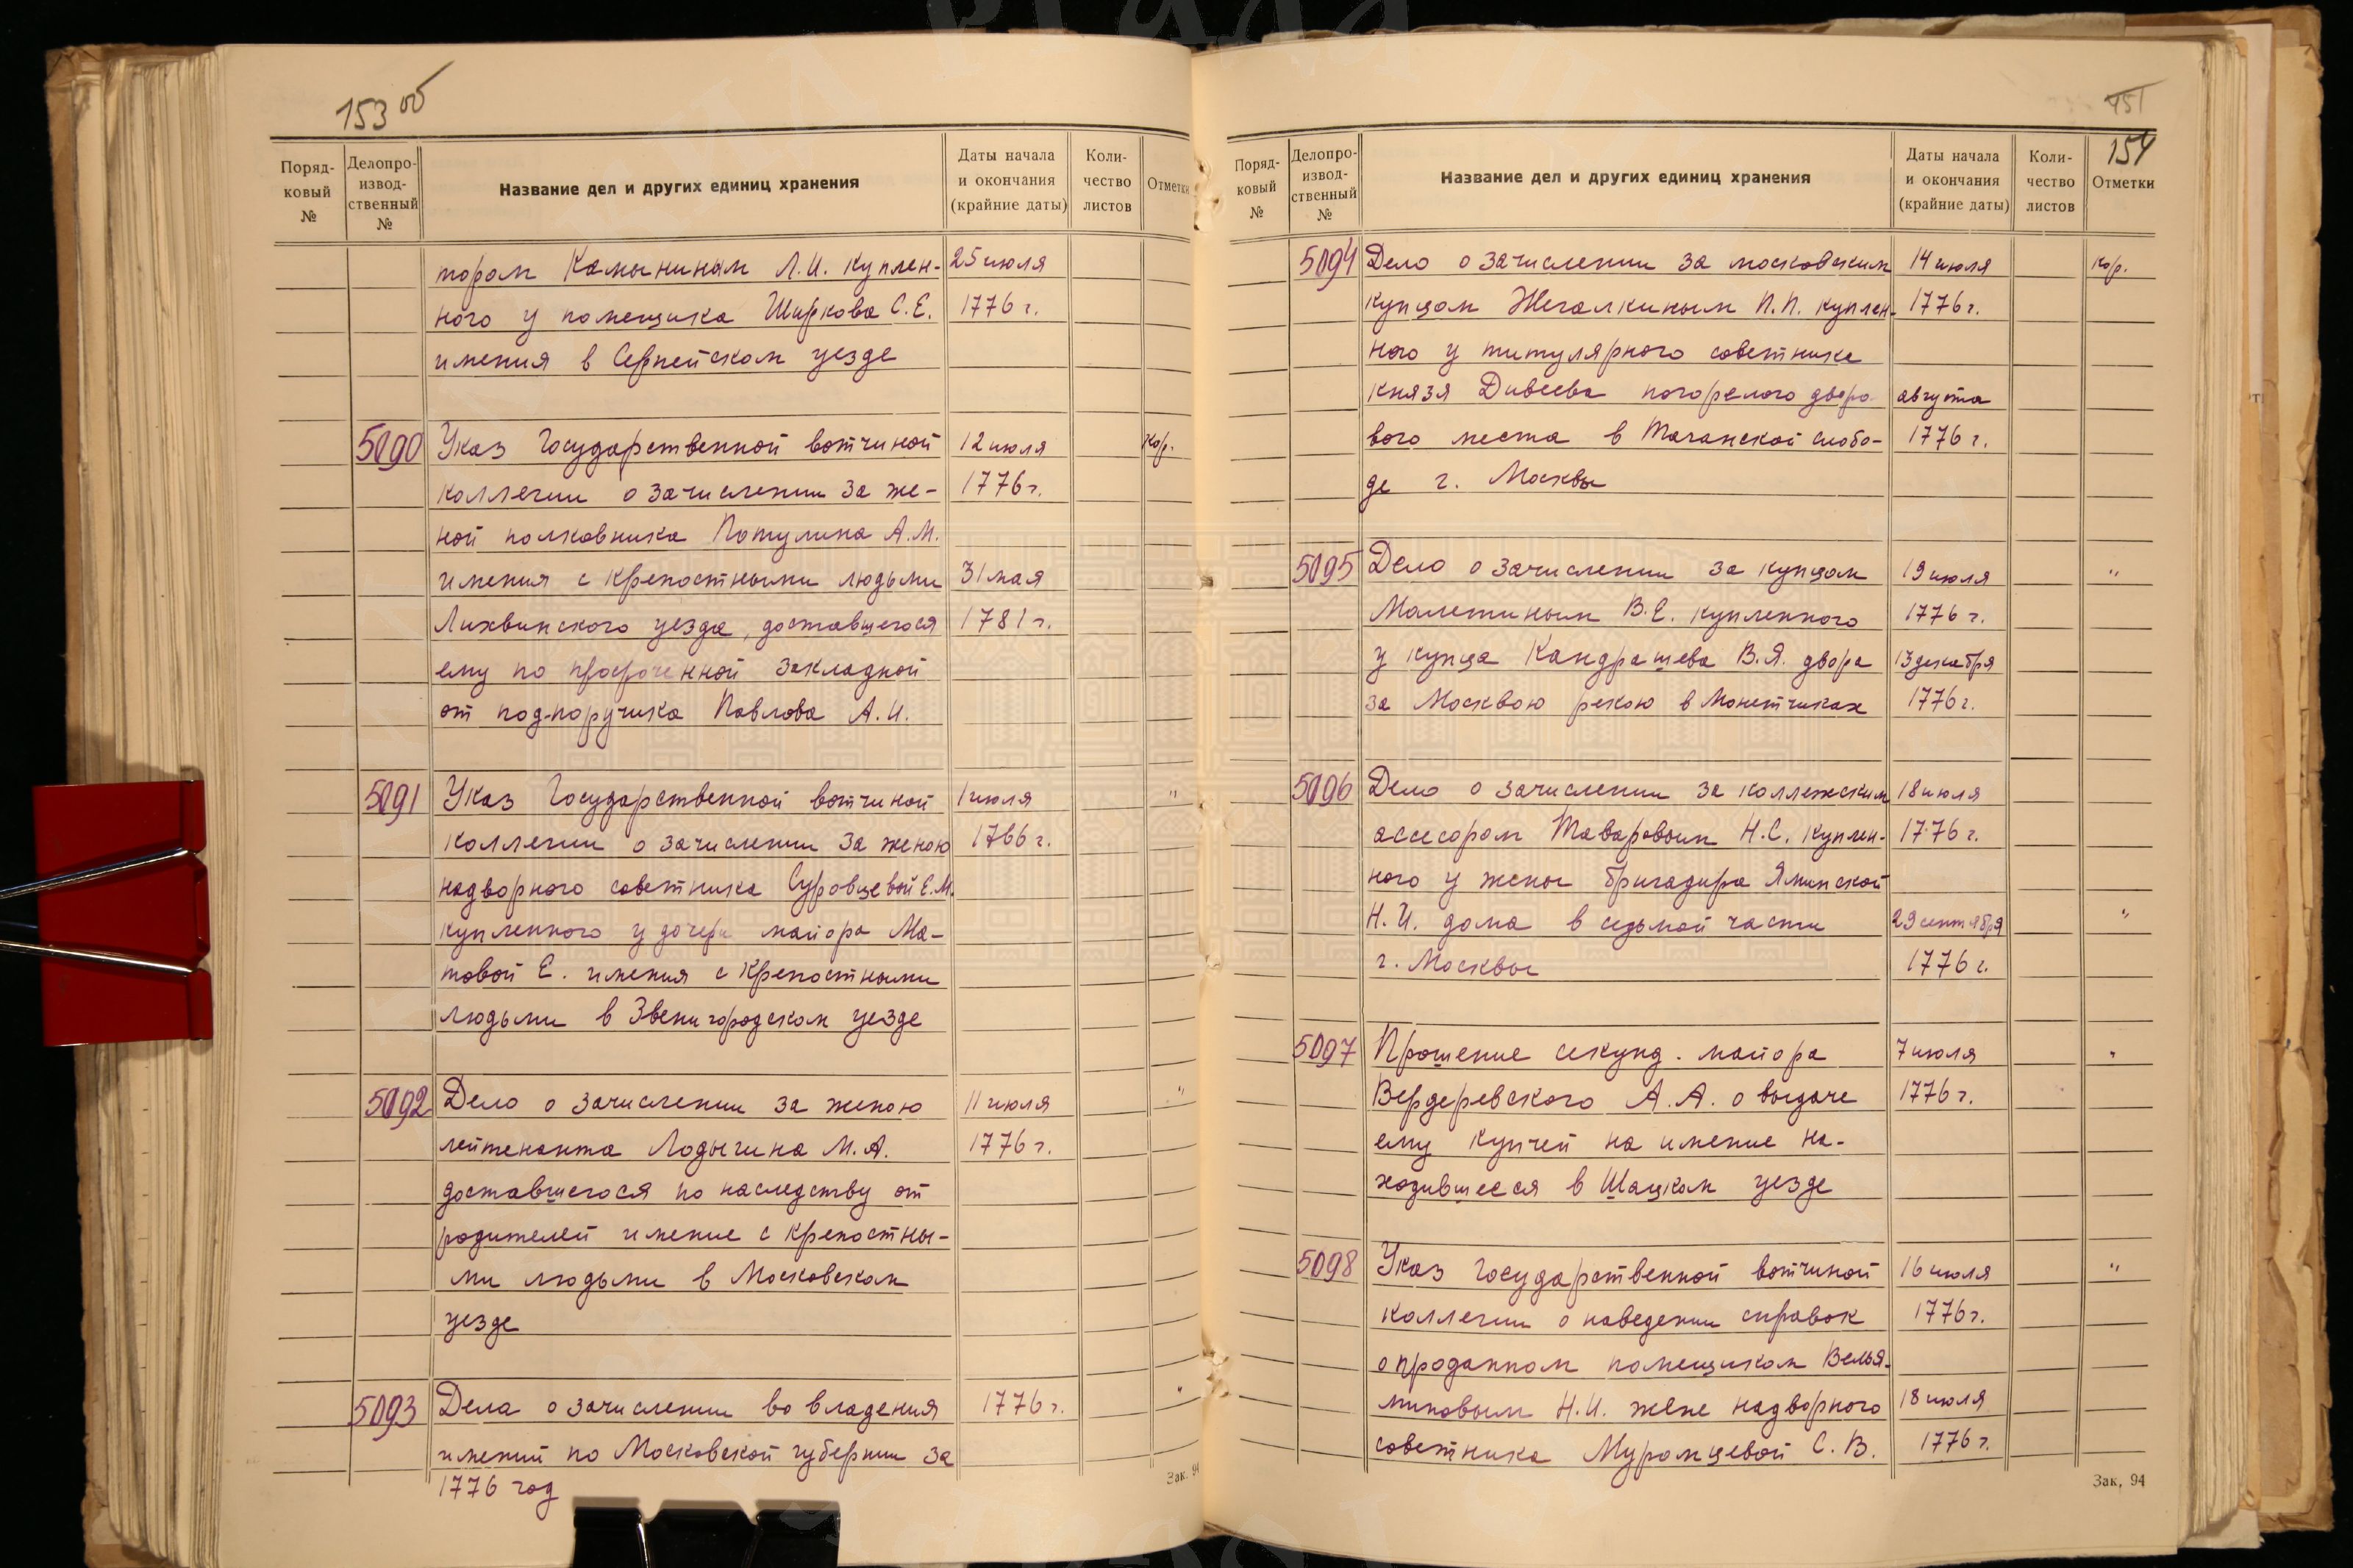 153 об
Поряд-
ковый
№
Делопро-
извод-
ственный
№
Название дел и других единиц хранения
Даты начала
и окончания
(крайние даты)
Коли-
чество
листов
Отметки
тором Камыниным Л.И. куплен- 25 июля
ного у помещика Ширкова С.Е. 1776 г.
имения в Серпейском уезде
5090 Указ Государственной вотчиной 12 июля кор.
коллегии о зачислении за же- 1776 г.
ной полковника Потулина А.М.
имения с крепостными людьми 31 мая
Лихвинского уезда, доставшегося 1781 г.
ему по просроченной закладной
от под-поручика Павлова А.И.
5091 Указ Государственной вотчиной 1 июля "
коллегии о зачислении за женою 1766 г.
надворного советника Суровцевой Е.М.
купленного у дочери майора Ма-
товой Е. имения с крепостными
людьми в Звенигородском уезде
5092 Дело о зачислении за женою 11 июля "
лейтенанта Лодыгина М.А. 1776 г.
доставшегося по наследству от
родителей имение с крепостны-
ми людьми в Московском
уезде
5093 Дела о зачислении во владения 1776 г. "
имений по Московской губернии за
1776 год
Зак. 94
451
154
Поряд-
ковый
№
Делопро-
извод-
ственный
№
Название дел и других единиц хранения
Даты начала
и окончания
(крайние даты)
Коли-
чество
листов
Отметки
5094 Дело о зачислении за московским 14 июля кор.
купцом Жегалкиным П.П. куплен- 1776 г.
ного у титулярного советника
князя Дивеева погорелого дворо- августа
вого места в Таганской слобо- 1776 г.
де г. Москвы
5095 Дело о зачислении за купцом 19 июля "
Малетиным В.Е. купленного 1776 г.
у купца Кандрашева В.Я. двора 13 декабря
за Москвою рекою в Монетчиках 1776 г.
5096 Дело о зачислении за коллежским 18 июля
ассесором Таваровым Н.С. куплен- 1776 г.
ного у жены бригадира Ялинской
Н.И. дома в седьмой части 29 сентября "
г. Москвы 1776 г.
5097 Прошение секунд. майора 7 июля "
Вердеревского А.А. о выдаче 1776 г.
ему купчей на имение на-
ходившееся в Шацком уезде
5098 Указ Государственной вотчиной 16 июля "
коллегии о наведении справок 1776 г.
о проданном помещиком Велья-
миновым Н.И. жене надворного 18 июля
советника Муромцевой С.В. 1776 г.
Зак. 94